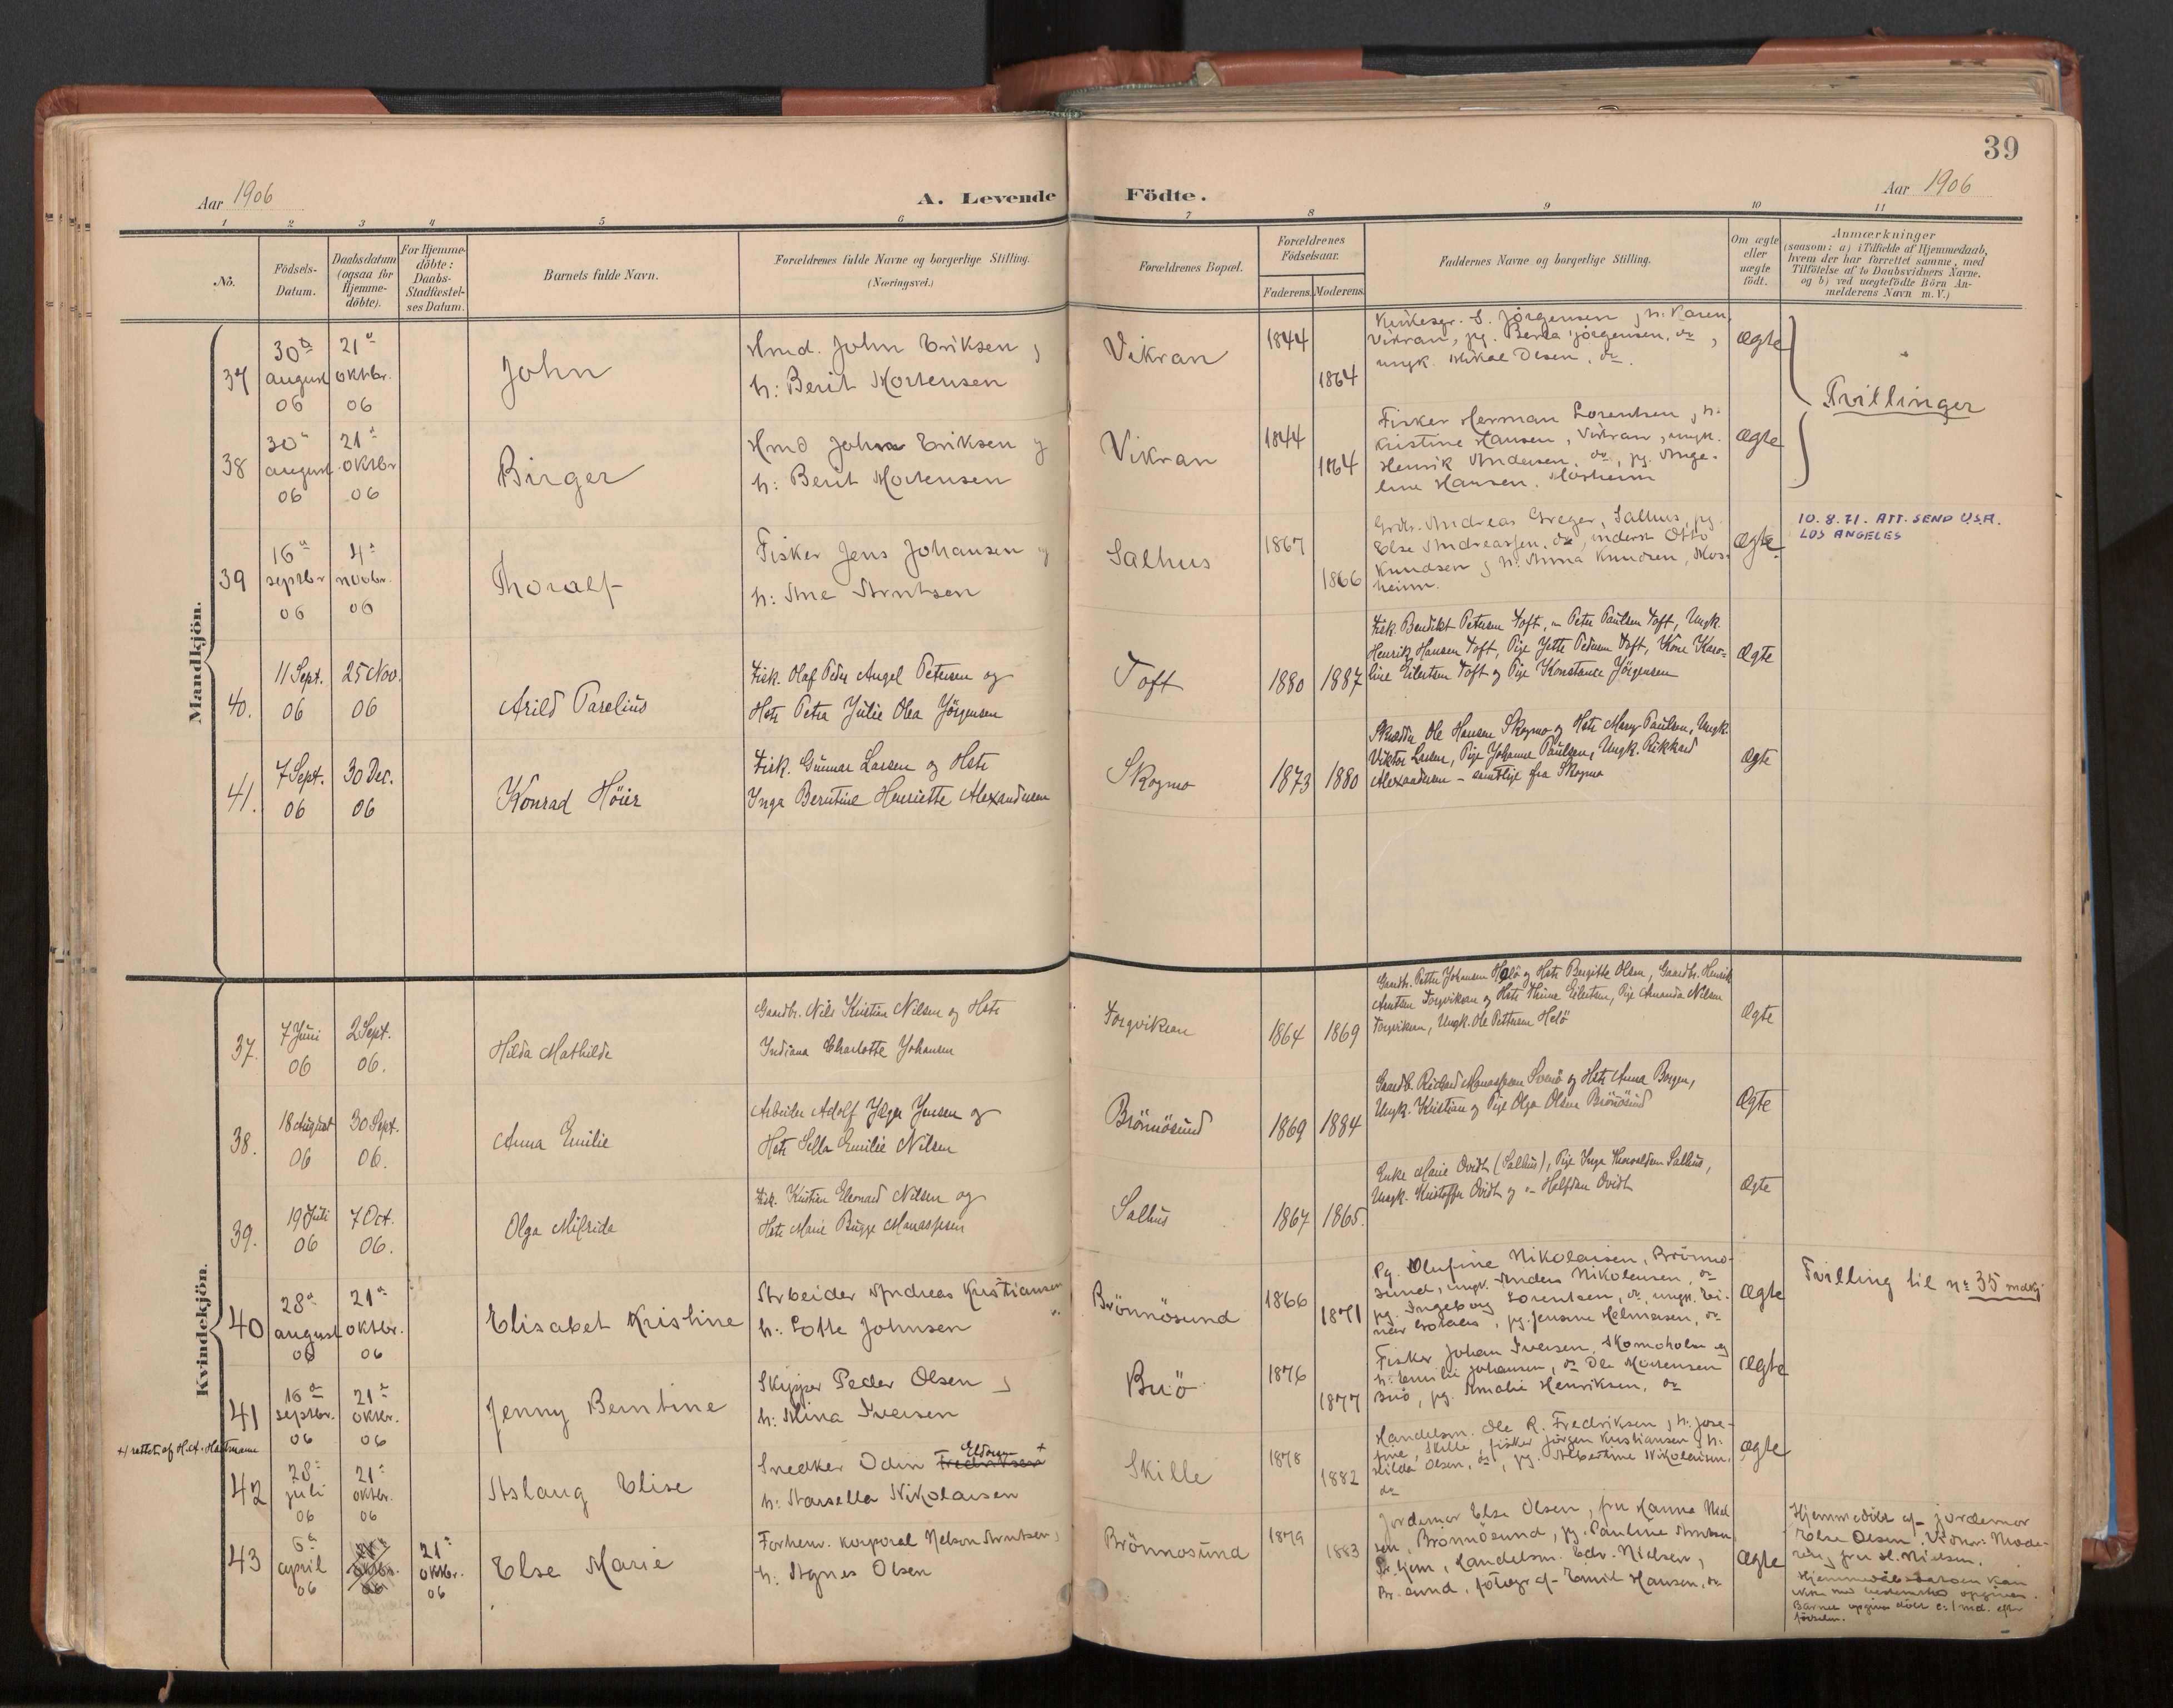 39
Aar 1906
A. Levende Födte.
Aar 1906
1 2 3 4 5 6 7 8 9 10 11
No.
Födsels-
Datum.
Daabsdatum
(ogsaa for
Hjemme-
döbte).
For Hjemme-
döbte:
Daabs-
Stadfæstel-
ses Datum.
Barnets fulde Navn.
Forældrenes fulde Navne og borgerlige Stilling.
(Næringsvei.)
Forældrenes Bopæl.
Forældrenes
Födselsaar.
Faderens. Moderens.
Faddernes Navne og borgerlige Stilling.
Om ægte
eller
uægte
født.
Anmærkninger
(saasom: a) i Tilfælde af Hjemmedaab,
hvem der har forrettet samme, med
Tilföielse af to Daabsvidners Navne.
og b) ved uægtefödte Börn An-
melderens Navn m. V.)
Mandkjön.
37
30te
august
06
21de
oktbr.
06
John
Kmd. John Eriksen og
h: Berit Mortensen
Vikran
1844
1864
Kirkesgr. S. Jörgensen og h: Karen,
Vikran, pg. Berta Jörgensen, do,
ungk. Mikal Olsen, do.
ægte
Tvillinger
38
30te
august
06
21de
oktbr
06
Birger
Kmd John Eriksen og
h: Berit Mortensen
Vikran
1844
1864
Fisker Herman Lorentsen og h:
Kristine Hansen, Vikran, ungk.
Henrik Andersen, do, pg. Ange-
line Hansen, Mosheim
ægte
39
16de
septbr
06
4de
novbr.
06
Thoralf
Fisker Jens Johansen og
h: Ane Arntsen
Salhus
1867
1866
Grdbr. Andreas Greger, Salhus, pg.
Else Andreassen, do, inderst Otto
Knudsen og h: Anna Knudsen, Mos-
heim.
ægte
10.8.71. ATT. SEND U.S.A.
LOS ANGELES
40.
11 Sept.
06
25 Nov.
06
Arild Parelius
Fisk. Olaf Peder Angel Petersen og
Hstr Petra Julie Olea Jörgensen
Toft
1880 1887
Fisk. Bendikt Petersen Toft, " Peter Paulsen Toft, Ungk.
Henrik Hansen Toft, Pige Jette Pedersen Toft, Kone Karo-
line Eilertsen Toft og Pige Konstance Jörgensen
Ægte
41.
7 Sept.
06
30 Dec.
06
Konrad Höier
Fisk. Gunnar Larsen og Hstr
Inga Berntine Henriette Alexandersen
Skogmo
1873 1880
Skrædder Ole Hansen Skogmo og Hstr Mary Paulsen, Ungk.
Viktor Larsen, Pige Johanne Paulsen, Ungk. Rikkard
Alexandersen - samtlige fra Skogmo
Ægte
Kvindekjön.
37.
7 Juni
06
2 Sept.
06.
Hilda Mathilde
Gaardbr. Nils Kristian Nilsen og Hstr
Indiana Charlotte Johansen
Torgviksen
1864 1869
Gaardb. Petter Johansen Helö og Hstr Bergitte Olsen, Gaardbr. Henrik
Arntsen Torgviksen og Hstr Thrine Eilertsen, Pige Amanda Nilsen
Torgviksen, Ungk. Ole Pettersen Helö
Ægte
38.
18 August
06
30 Sept.
06.
Anna Emilie
Arbeider Adolf Jæger Jensen og
Hstr Sella Emilie Nilsen
Brönnösund
1869 1884
Gaardb. Richard Manassesen Svenö og Hstr Anna Borgen,
Ungk. Kristian og Pige Olga Olsen Brönnösund
Ægte
39.
19 Juli
06
7 Oct.
06.
Olga Alfrida
Fisk. Kristian Eleonard Nilsen og
Hstr Marie Bugge Manassesen
Salhus
1867 1865.
Enke Marie Qvidt (Salhus), Pige Inga Thorvaldsen Salhus,
Ungk. Kristoffer Qvidt og " Halfdan Qvidt
Ægte
40
28de
august
06
21de
oktbr.
06
Elisabet Kristine
Arbeider Andreas Kristiansen
h: Lotte Johnsen
Brönnösund
1866
1871
Pg. Olufine Nikolaisen, Brönnö-
sund, ungk. Anders Nikolaisen, do
pg. Ingeborg Lorentsen, do, ungk. Ei-
nar, pg. Jensine Helmersen, do
ægte
Tvilling til no 35 mdkj
41
16de
septbr.
06
21de
oktbr.
06
Jenny Berntine
Skipper Peder Olsen og
h: Mina Iversen
Buö
1876
1877
Fisker Johan Iversen, Skomoholm og
h: Emilie Johansen, do Ole Mortensen
Buö, pg. Amalie Henriksen, do
ægte
+) rettet af H.A. Hartmann
42
28de
juli
06
21de
oktbr.
06
Aslaug Elise
Snedker Odin Fredriksen Eldoen +
h: Marsella Nikolaisen
Skille
1878
1882
Handelsm. Ole R. Fredriksen og h: Jose-
fine, Skille, fisker Jörgen Kristiansen, h:
Hilda Olsen, do, pg. Albertine Nikolaisen,
do
ægte
43
6te
april
06
21de
oktbr.
06
21de
oktbr.
06
Else Marie
Forhenv. korporal Nelson Arntsen,
h: Agnes Olsen
Brönnösund
1879
1883
Jordemor Else Olsen, fru Hanna Niel-
sen, Brönnösund, pg. Pauline Arntsen
Br.hjem, handelsm. Edv. Nielsen,
Br.sund, fotograf Emil Hansen, do
ægte
Hjemmedöbt af jordemor
Else Olsen. Vidner: Mode-
ren og fru H. Nielsen.
Hjemmedåbsdatoen kan
ikke med bestemthed opgives.
Barnet opgives döbt c: 1 md. efter
fødselen.